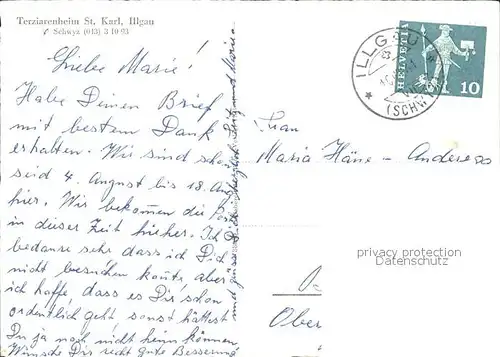 Terziarenheim St. Karl, Illgau
Schwyz (043) 3 10 93
Liebe Marie!
Habe Deinen Brief
mit bestem Dank
erhalten. Wir sind schon
seid 4. August bis 18. Aug
hier. Wir bekommen die Post
in dieser Zeit hieher. Ich
bedaure sehr dass ich Dich
nicht besuchen konte, aber
ich hoffe, dass es Dir schon
ordentlich geht sonst hättest
Du ja noch nicht heim können
Wünsche Dir recht gute Besserung
und
ILLGAU
(SCHWYZ)
HELVETIA
10
Frau
Maria Häne - Anderegg
privacy protection
Datenschutz
Ober